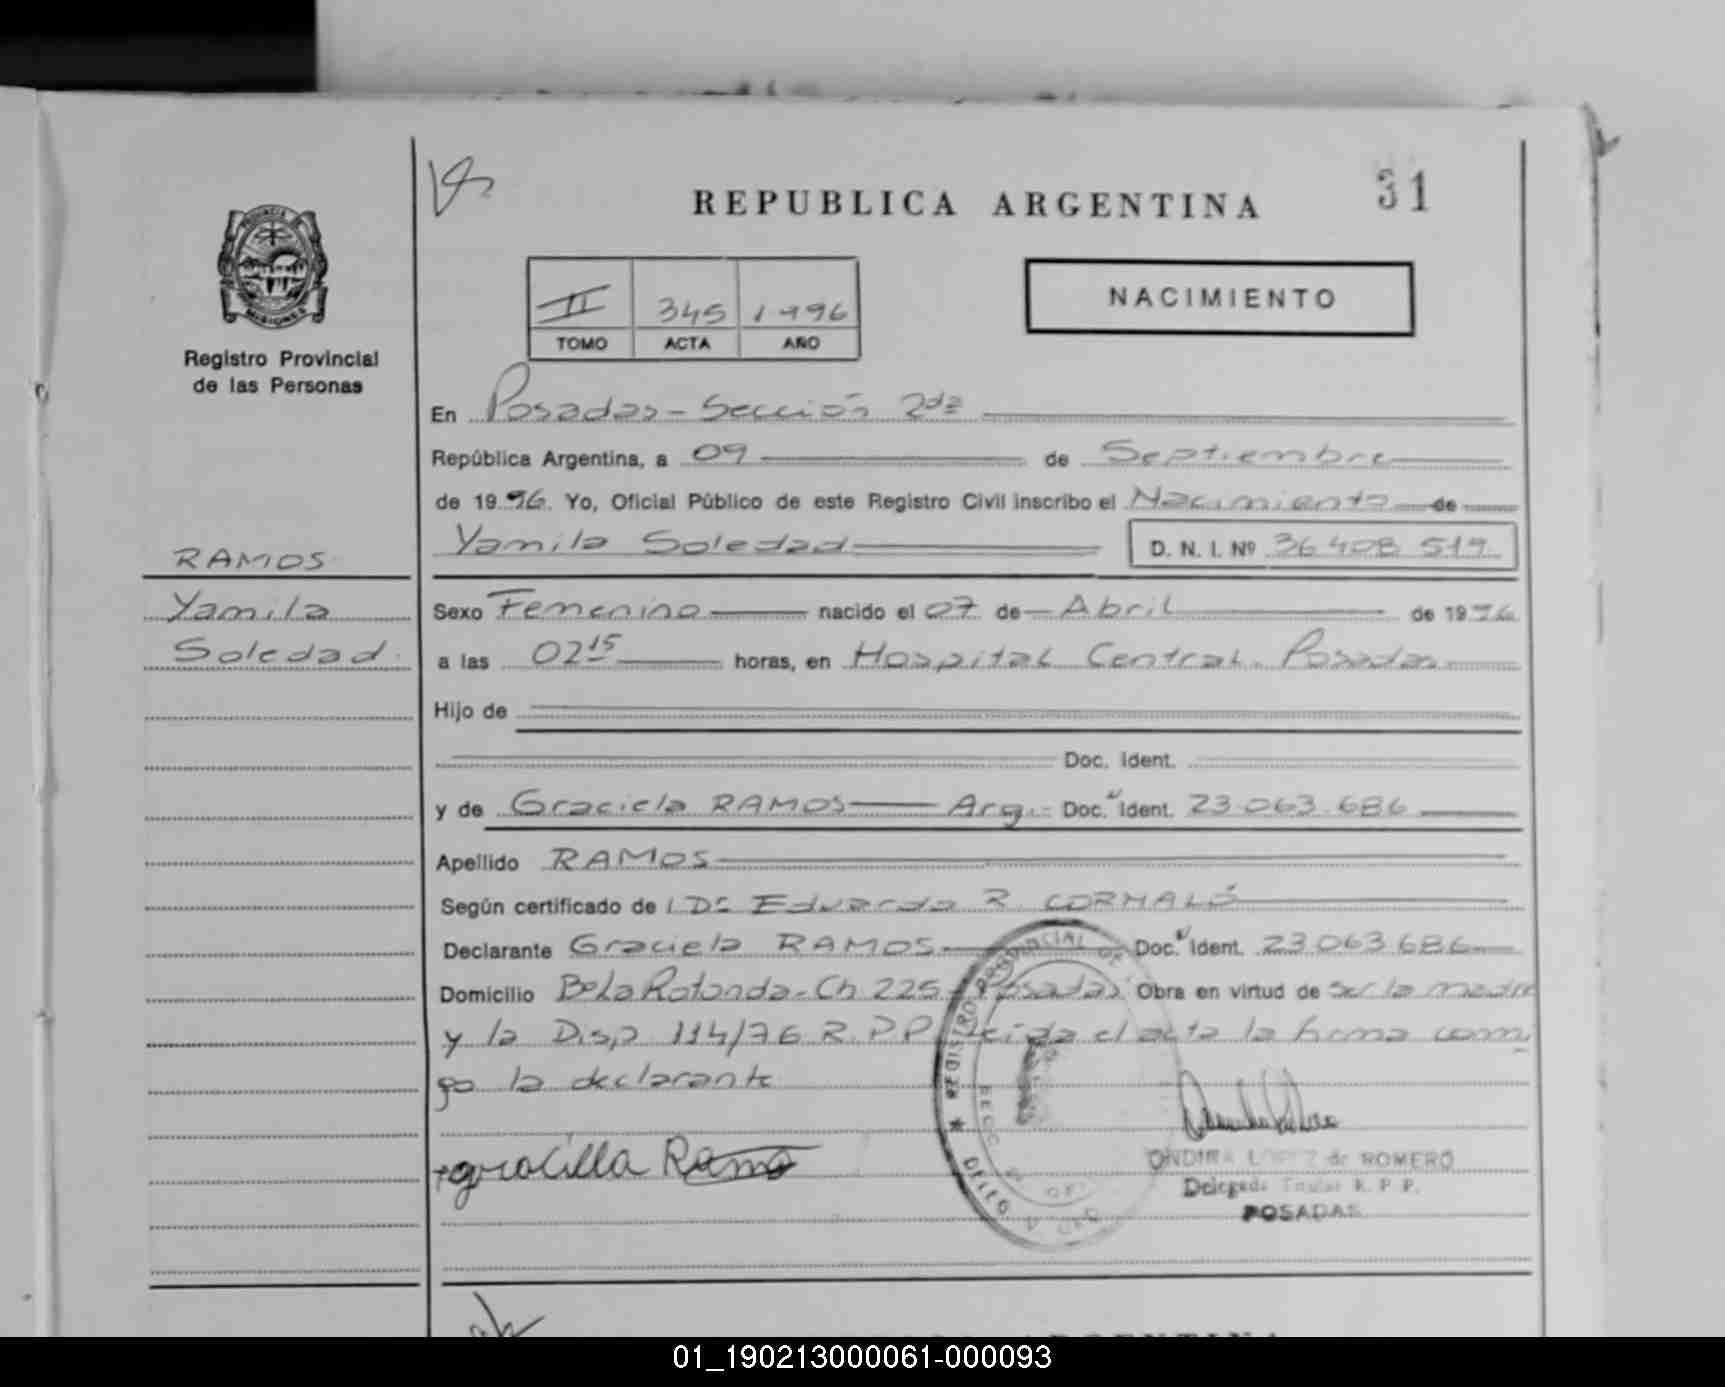 REPUBLICA ARGENTINA
31
PROVINCIA DE
MISIONES
Registro Provincial
de las Personas
II 345 1996
TOMO ACTA AÑO
NACIMIENTO
En Posadas - Sección 2da
República Argentina, a 09 de Septiembre
de 1996. Yo, Oficial Público de este Registro Civil inscribo el Nacimiento de
Yamila Soledad D. N. I. Nº 36 408 519
RAMOS
Yamila
Soledad
Sexo Femenino nacido el 07 de Abril de 1996
a las 02 15 horas, en Hospital Central. Posadas
Hijo de
Doc. Ident.
y de Graciela RAMOS Arg. Doc. Ident. 23.063.686
Apellido RAMOS
Según certificado de Eduardo R. CORMALÓ
Declarante Graciela RAMOS Doc. Ident. 23.063.686
Domicilio Bº La Rotonda - Ch 225 - Posadas Obra en virtud de ser la madre
y la Disp. 114/76 R.P.P. Leida el acta la firma conmi
go la declarante
Ramos
REGISTRO PROVINCIAL DE
ONDINA LOPEZ de ROMERO
Delegada Titular R. P. P.
POSADAS
ARGENTINA
01_190213000061-000093